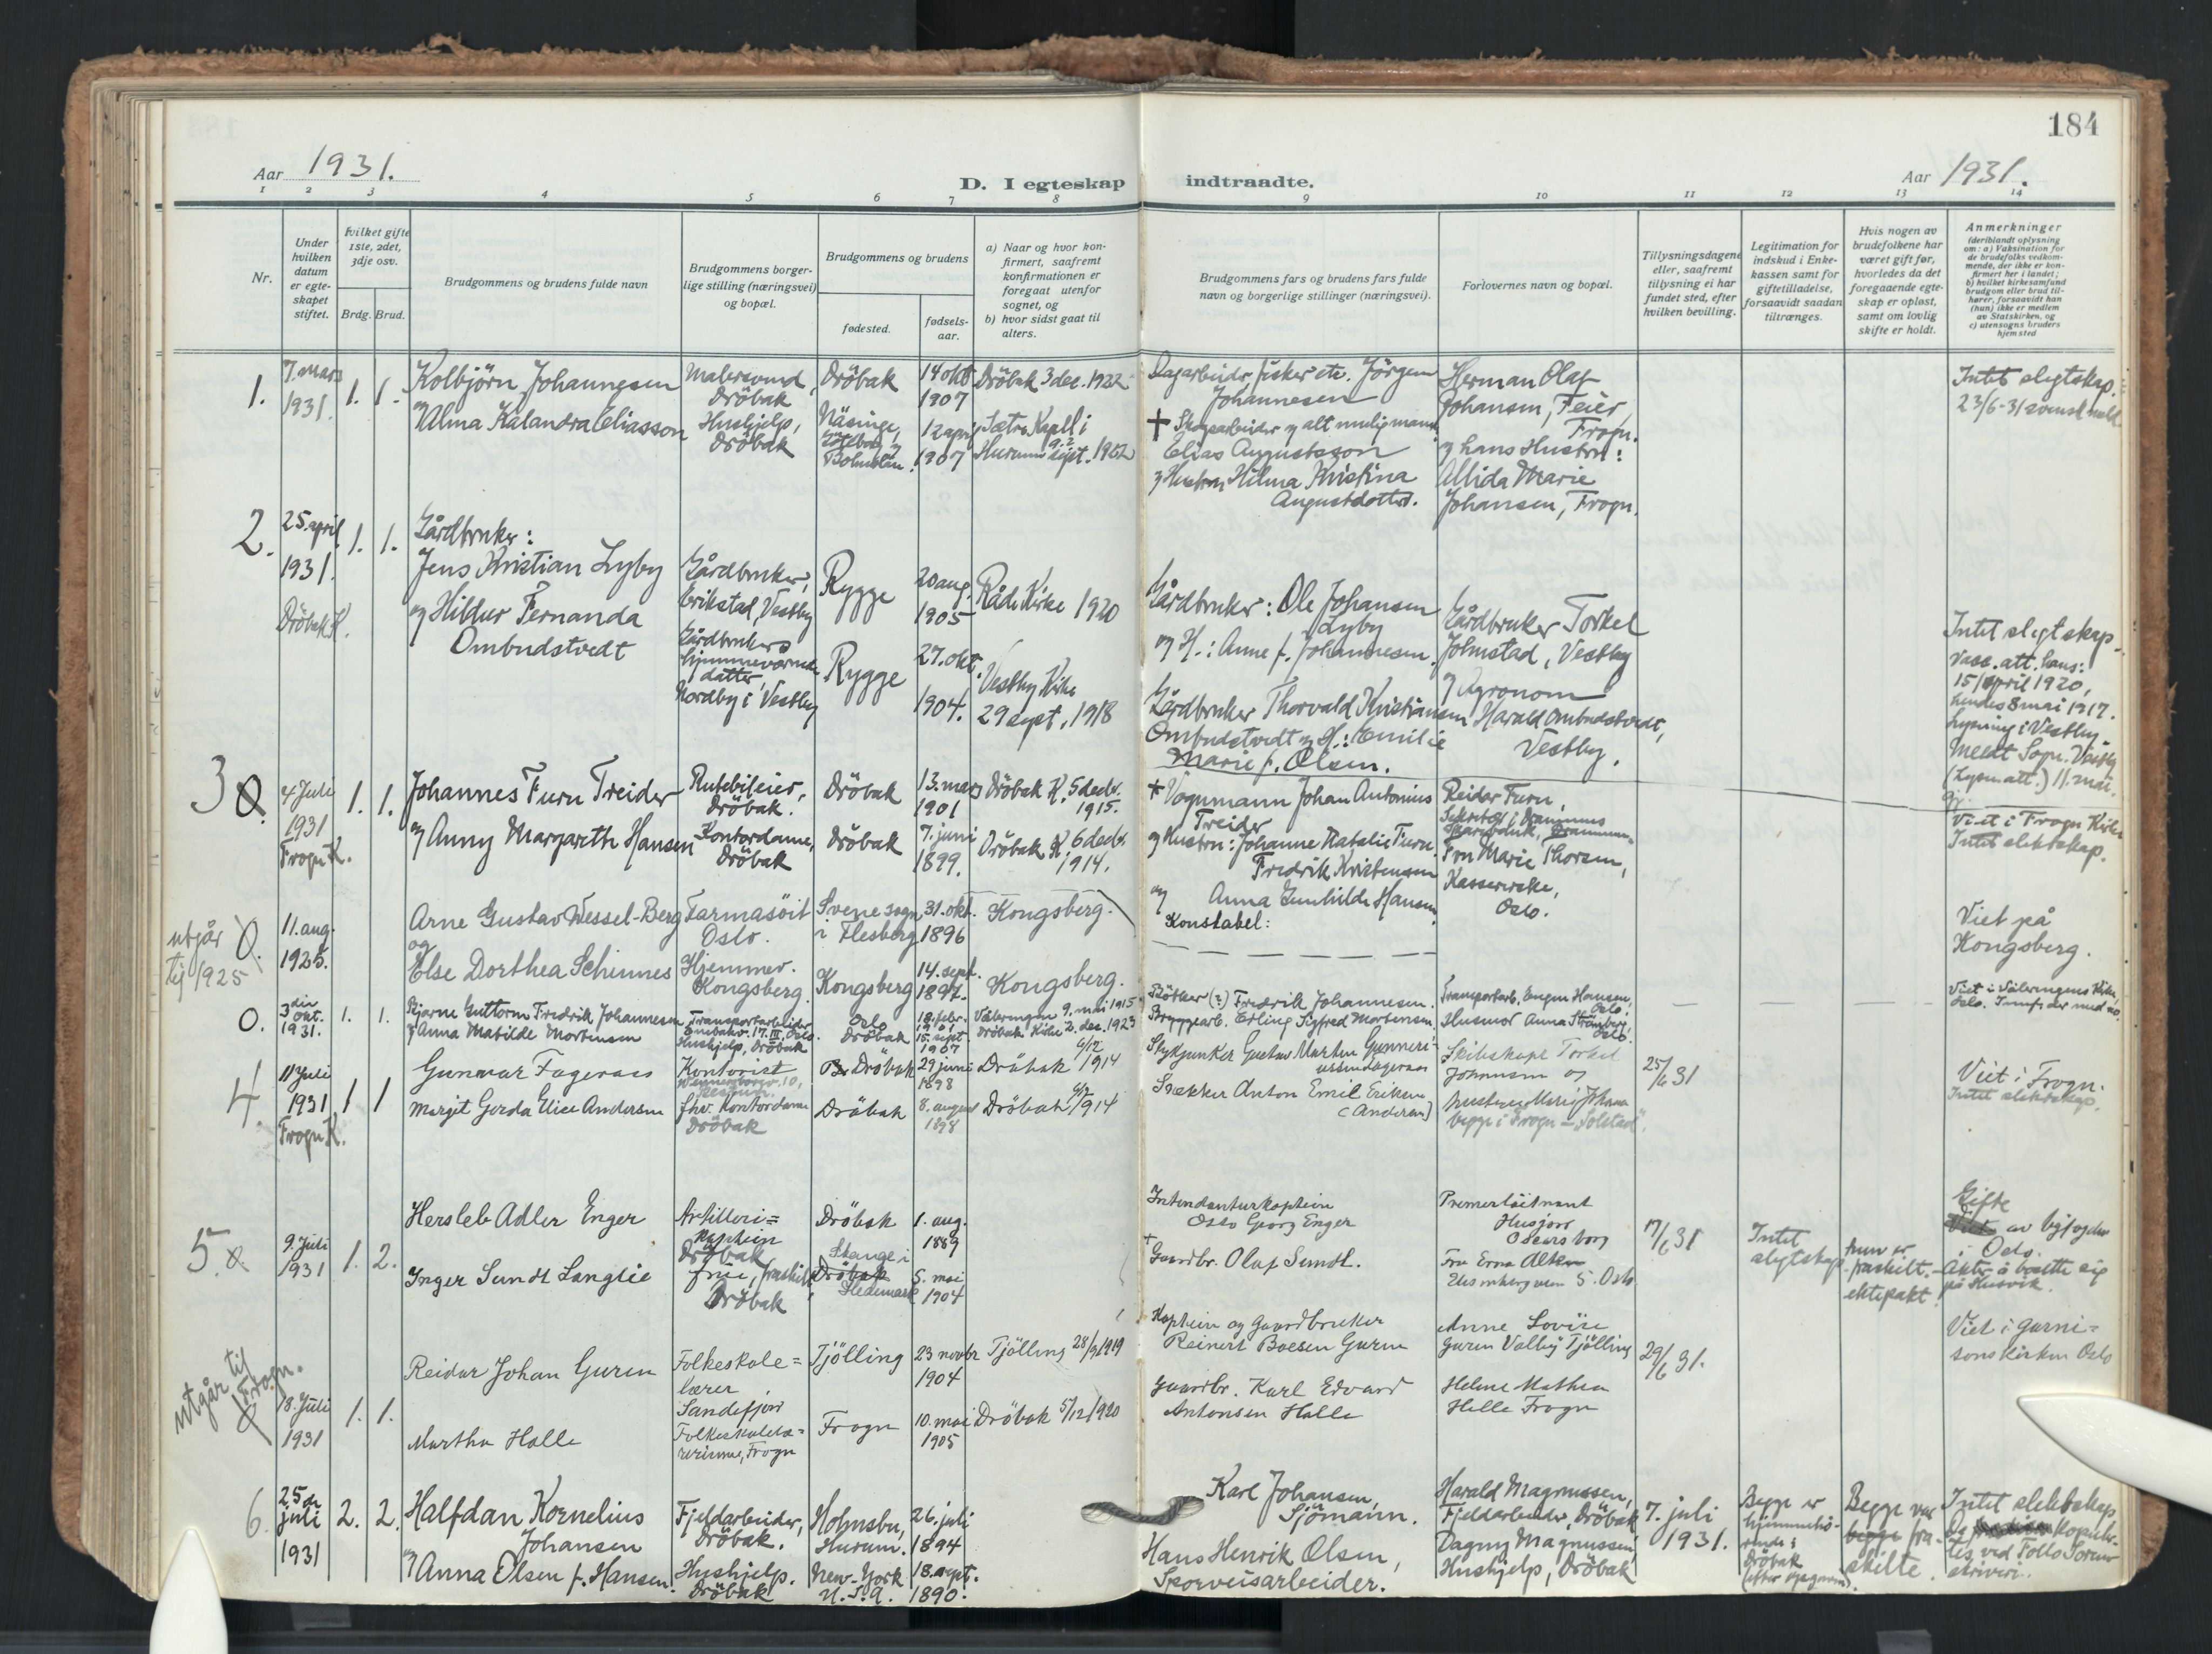 184
Aar 1931.
D. I egteskap indtraadte.
Aar 1931.
1 2 3 4 5 6 7 8 9 10 11 12 13 14
Nr.
Under hvilken datum er egteskapet stiftet.
Hvilket gifte 1ste, 2det, 3dje osv.
Brdg. Brud.
Brudgommens og brudens fulde navn
Brudgommens borgerlige stilling (næringsvei) og bopæl.
Brudgommens og brudens
fødested.
fødselsaar.
a) Naar og hvor konfirmert, saafremt konfirmationen er foregaat utenfor sognet, og
b) hvor sidst gaat til alters.
Brudgommens fars og brudens fars fulde navn og borgerlige stillinger (næringsvei).
Forlovernes navn og bopæl.
Tillysningsdagene eller, saafremt tillysning ei har fundet sted, efter hvilken bevilling.
Legitimation for indskud i Enkekassen samt for giftetilladelse, forsaavidt saadan tiltrænges.
Hvis nogen av brudefolkene har været gift før, hvorledes da det foregaaende egteskap er opløst, samt om lovlig skifte er holdt.
Anmerkninger
(deriblandt oplysning om: a) Vaksination for de brudefolks vedkommende, der ikke er konfirmert her i landet;
b) hvilket kirkesamfund brudgom eller brud tilhører, forsaavidt han (hun) ikke er medlem av Statskirken, og
c) utensogns bruders hjemsted
1. 7. mars 1931. 1. 1.
Kolbjörn Johannesen
og Alma Kalandra Eliasson
Malersvend, Dröbak
Hushjelp, Dröbak
Dröbak
Näsinge,
14 okt 1907
12 april 1907
Dröbak 3 dec. 1922
Sætre Kapell i Hurum
Dagarbeider, fisker etc. Jörgen Johannesen
† Skogsarbeider og alt mulig mann
Elias Augustsson
og Hustru Hilma Kristina Augustdotter.
Herman Olaf Johansen, Feier, Frogn.
og hans Hustru:
Alida Marie Johansen, Frogn.
Intet slegtskap.
2. 25. april 1931. Dröbak K. 1. 1.
Gårdbruker:
Jens Kristian Lyby
og Hildur Fernanda
Ombudstvedt
Gårdbruker, Erikstad, Vestby
Gårdbrukers hjemmeværende datter, Nordby i Vestby
Rygge
Rygge
20 aug. 1905
27. okt. 1904.
Råde Kirke 1920
Vestby Kirke 29 sept. 1918
Gårdbruker: Ole Johansen Lyby
og H.: Anne f. Johannesen.
Gårdbruker Thorvald Kristiansen
Ombudstvedt og H.: Emilie
Marie f. Olsen.
Gårdbruker Torkel
Johnstad, Vestby
og Agronom
Harald Ombudstvedt,
Vestby.
Intet slegtskap.
Vacc. att. hans:
15/april 1920,
hendes 8 mai 1917.
Lysning i Vestby.
Meldt Sogn. Vestby
(Lysn. att.) 11. mai.
3 0. 4 Juli 1931 Frogn K. 1. 1.
Johannes Furu Treider
og Anny Margarethe Hansen
Rutebileier, Dröbak.
Kontordame, Dröbak
Dröbak
Dröbak
13. mars 1901
7. juni 1899.
Dröbak K. 5 decbr. 1915.
Dröbak K. 6 decbr. 1914.
† Vognmann Johan Antonius
Treider
og Hustru: Johanne Natalie Furu.
Fredrik Kristensen
og Anna Gunhilde Hansen
Konstabel:
Reidar Furu,
Fru Marie Thorsen,
Kassererske,
Oslo.
Viet i Frogn Kirke
Intet slektskap.
utgår til 1925 0. 11. aug. 1925.
Arne Gustav Wessel-Berg
og
Else Dorthea Schinnes
Farmasöit Oslo.
Hjemmev. Kongsberg.
Svene sogn i Flesberg
Kongsberg
31. okt. 1896
14. sept. 1897.
Kongsberg.
Kongsberg.
Viet på
Kongsberg.
0. 3die okt. 1931. 1. 1.
Bjarne Guttorm Fredrik Johannesen
og Anna Matilde Mortensen
Transportarbeider
Hushjelp, Dröbak
Oslo
Dröbak
18. febr.
15. sept. 1907
Vålerengen 9. mai 1915
Dröbak Kirke 2. dec. 1923
Bötker (?) Fredrik Johannesen.
Bryggearb. Erling Sigfred Mortensen
Transportarb. Eugen Hansen, Oslo.
Husmor Anna Strömberg, Oslo.
Viet i Vålerengens Kirke, Oslo.
4. 11 Juli 1931 Frogn K. 1 1
Gunnar Fageraas
Margit Gerda Elise Andersen
Kontorist
fhv. Kontordame Dröbak
Dröbak
Dröbak
29 juni 1898
8. august 1898
Dröbak 1914
Dröbak 1914
Anton Emil Eriksen
(Andersen)
Skibskapt Torkel
Johansen og
begge i Frogn "Solstad".
25/6 31
Viet i Frogn.
Intet slektskap.
5. 9. Juli 1931 1. 2.
Hersleb Adler Enger
Inger Sundt Langlie
Artillerikaptein Dröbak
frue, fraskilt, Dröbak
Dröbak
Stange i Hedemark
1. aug. 1889
5. mai 1904
Intendanturkaptein
Otto Georg Enger
† Gaardbr. Olaf Sundt.
Premierlöitnant
Husjord
Oscarsborg
17/6 31
Intet slegtskap
hun er fraskilt. ektepakt.
Gifte av byfogden
i Oslo.
Akter å bosette sig
på Husvik.
utgår til Frogn. 18. Juli 1931 1. 1.
Reidar Johan Guren
Martha Halle
Folkeskolelærer Sandefjord
Folkeskolelærerinne, Frogn
Tjölling
Frogn
23 novbr 1904
10. mai 1905
Tjölling 28/9 1919
Dröbak 5/12 1920
Kaptein og Gaardbruker
Reinert Boesen Guren
Gaardbr. Karl Edvard
Antonsen Halle
Anne Lovise
Guren Valby Tjölling
Helene Mathea
Halle Frogn
29/6 31.
Viet i garnisonskirken Oslo
6. 25de juli 1931 2. 2.
Halfdan Kornelius
Johansen
og Anna Olsen f. Hansen.
Fjeldarbeider, Dröbak.
Hushjelp. Dröbak
Holmsbu, Hurum.
New-York U.S.A.
26. juli 1894
18. sept. 1890.
Karl Johansen,
Sjömann.
Hans Henrik Olsen,
Sporveisarbeider.
Harald Magnussen,
Fjeldarbeider, Dröbak
Dagny Magnussen,
Hushjelp, Dröbak
7. juli 1931.
Begge er hjemmehörende i Dröbak
Begge var fraskilte.
Intet slektskap